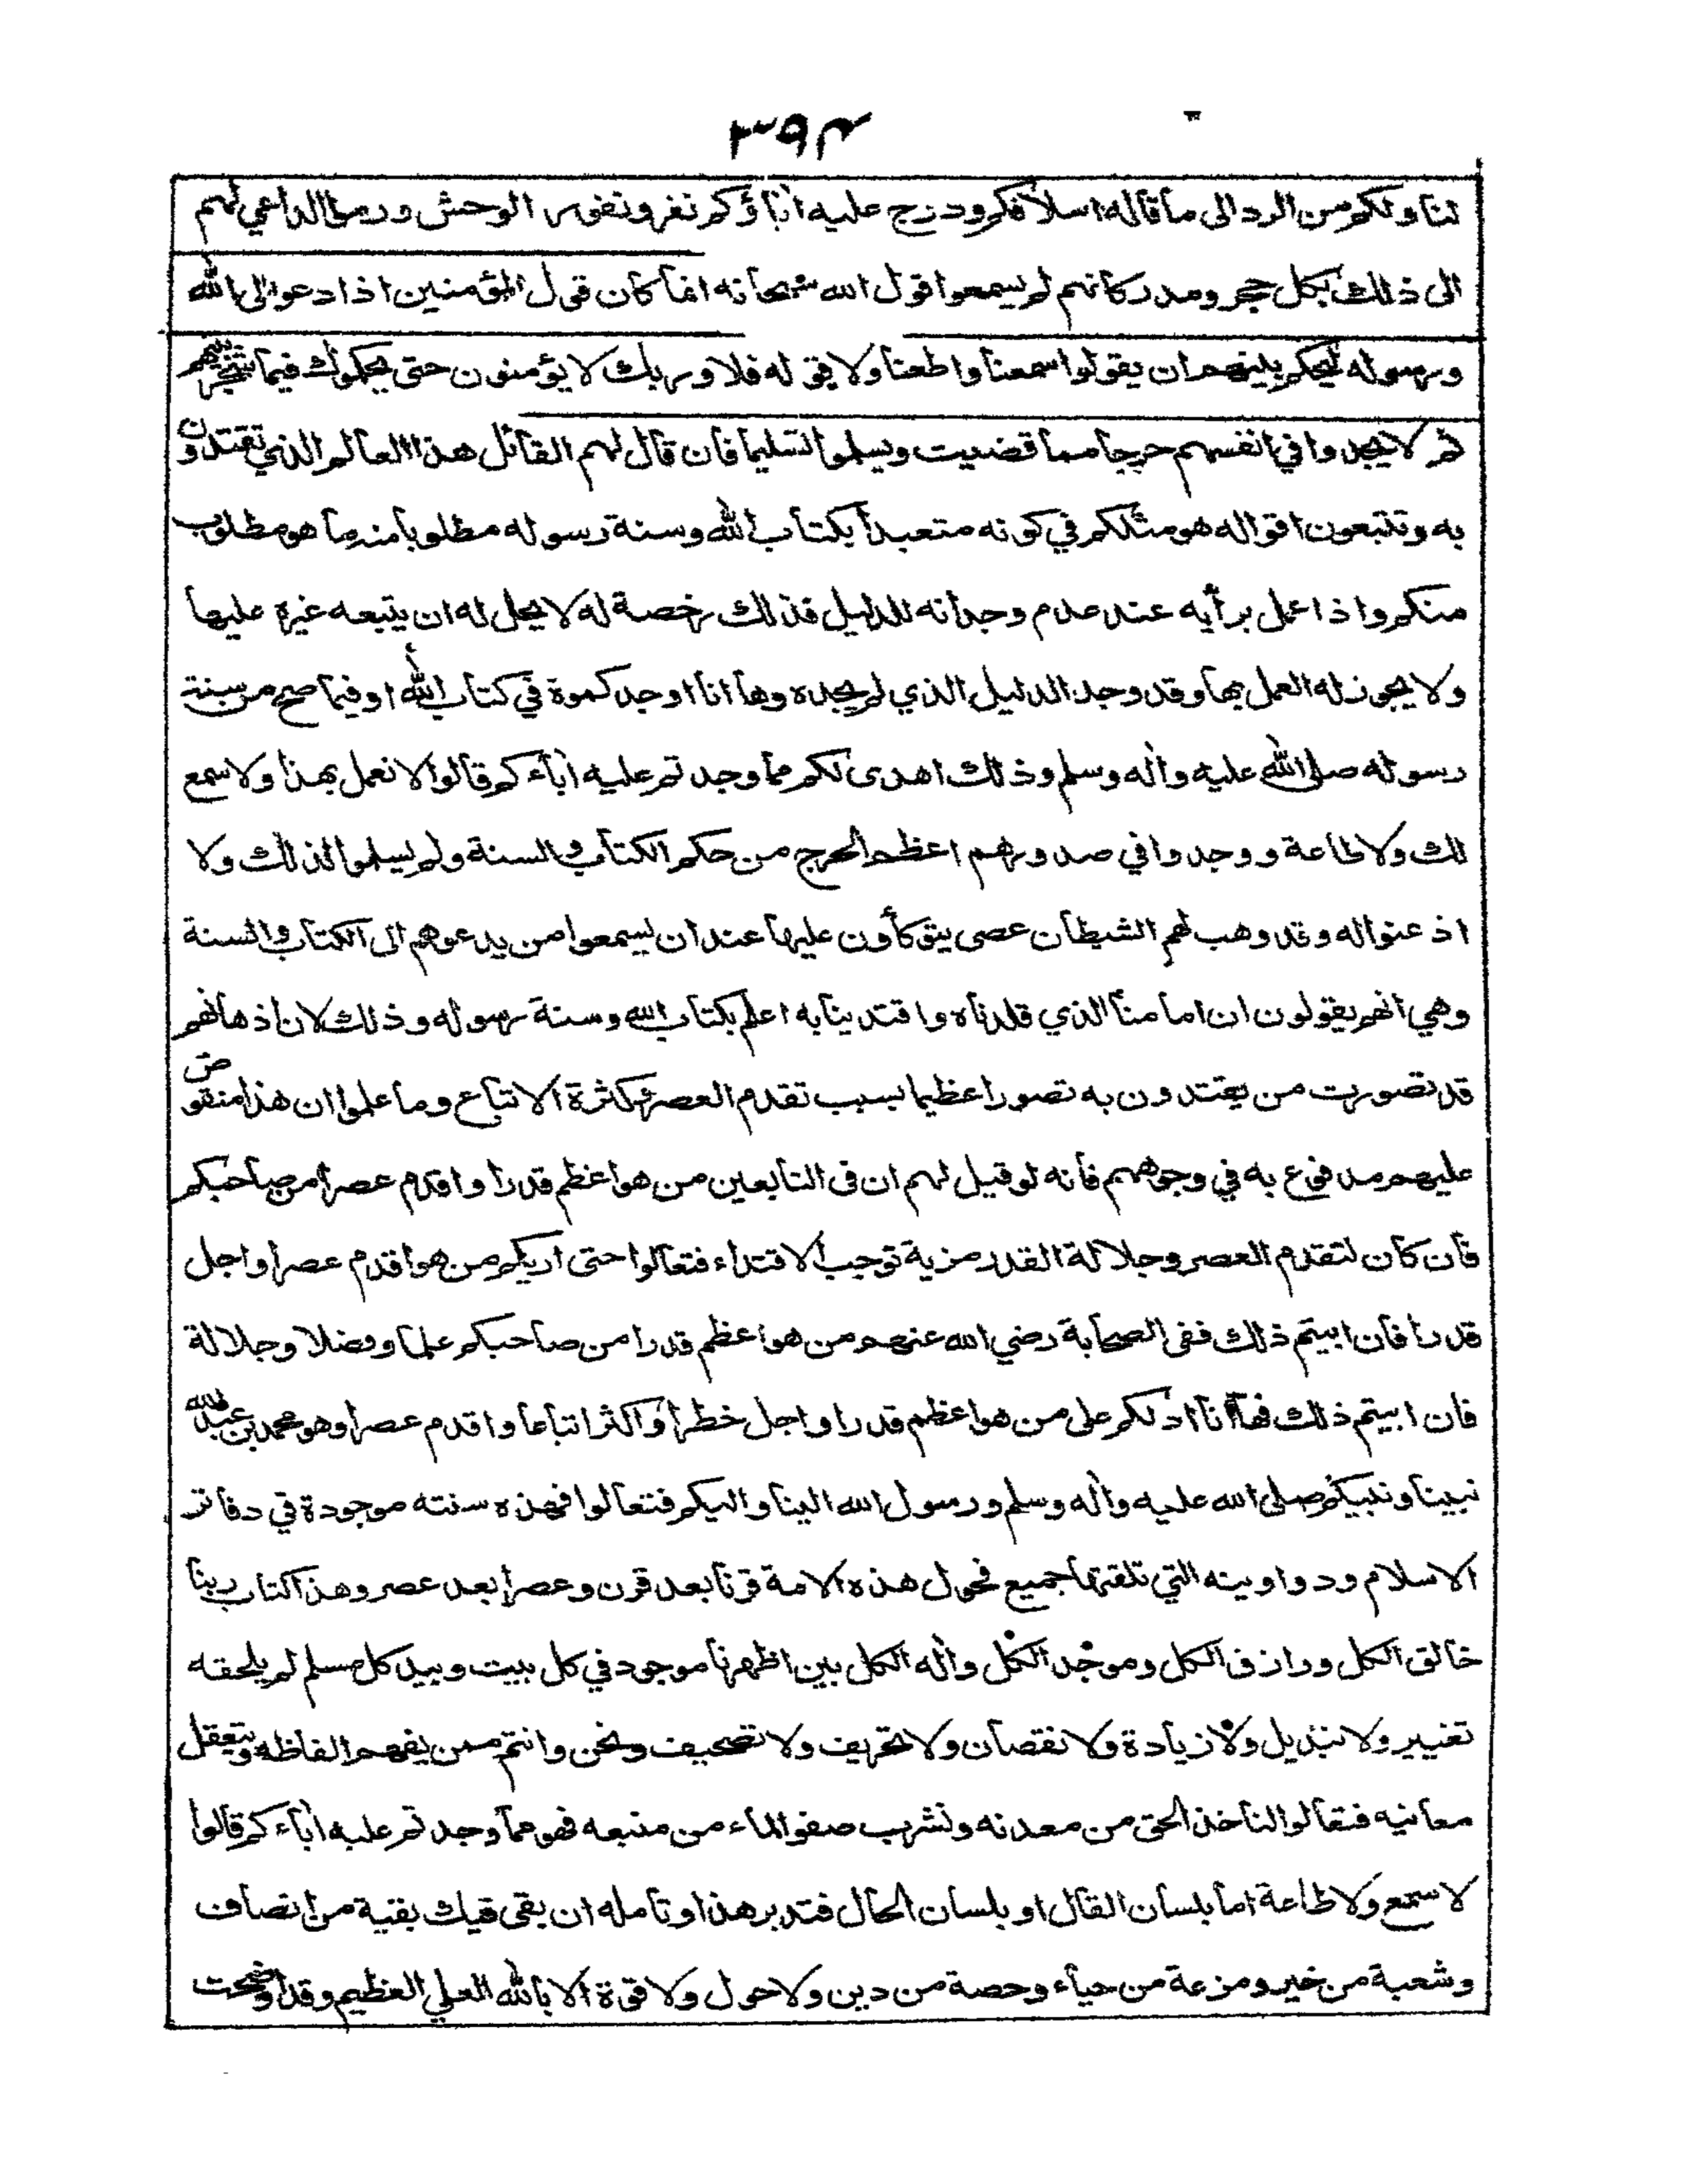 ٣٩٣
لنا ولكم من الرد الى ما قاله اسلافكم ودرج عليه اٰباؤكم نفروا نفور الوحش ورموا الداعي لهم
الى ذلك بكل حجر ومدر كانهم لم يسمعوا قول الله سبحانه انما كان قول المؤمنين اذا دعوا الى الله
ورسوله ليحكم بينهم ان يقولوا سمعنا واطعنا ولا قوله فلا وربك لا يؤمنون حتى يحكموك فيما شجر بينهم
ثم لا يجدوا في انفسهم حرجا مما قضيت ويسلموا تسليما فان قال لهم القائل هذا العالم الذي تقتدون
به وتتبعون اقواله هو مثلكم في كونه متعبدا بكتاب الله وسنة رسوله مطلوبا منه ما هو مطلوب
منكم واذا عمل برأيه عند عدم وجدانه للدليل فذلك رخصة له لا يحل له ان يتبعه غيره عليها
ولا يجوز له العمل بها وقد وجد الدليل الذي لم يجده وها انا اوجدكموه في كتاب الله او فيما صح من سنة
رسوله صلى الله عليه واٰله وسلم وذلك اهدى لكم مما وجدتم عليه اٰباءكم قالوا لا نعمل بهذا ولا سمع
لك ولا طاعة ووجدوا في صدورهم اعظم الحرج من حكم الكتاب والسنة ولم يسلموا لذلك ولا
اذعنوا له وقد وهب لهم الشيطان عصى يتوكأون عليها عند ان يسمعوا من يدعوهم الى الكتاب والسنة
وهي انهم يقولون ان امامنا الذي قلدناه واقتدينا به اعلم بكتاب الله وسنة رسوله وذلك لان اذهانهم
قد تصورت من يقتدون به تصورا عظيما بسبب تقدم العصر وكثرة الاتباع وما علموا ان هذا منقوض
عليهم مدفوع به في وجوههم فانه لو قيل لهم ان فى التابعين من هو اعظم قدرا واقدم عصرا من صاحبكم
فان كان لتقدم العصر وجلالة القدر مزية توجب الاقتداء فتعالوا حتى اريكم من هو اقدم عصرا واجل
قدرا فان ابيتم ذلك ففى الصحابة رضي الله عنهم من هو اعظم قدرا من صاحبكم علما وفضلا وجلالة
فان ابيتم ذلك فها انا ادلكم على من هو اعظم قدرا واجل خطرا واكثر اتباعا واقدم عصرا وهو محمد بن عبدالله
نبينا ونبيكم صلى الله عليه واٰله وسلم ورسول الله الينا واليكم فتعالوا فهذه سنته موجودة في دفاتر
الاسلام ودواوينه التي تلقتها جميع فحول هذه الامة قرنا بعد قرن وعصرا بعد عصر وهذا كتاب ربنا
خالق الكل ورازق الكل وموجد الكل واٰله الكل بين اظهرنا موجود في كل بيت وبيد كل مسلم لم يلحقه
تغيير ولا تبديل ولا زيادة ولا نقصان ولا تحريف ولا تصحيف ونحن وانتم ممن يفهم الفاظه ويتعقل
معانيه فتعالوا لنأخذ الحق من معدنه ونشرب صفو الماء من منبعه فهو مما وجدتم عليه اٰباءكم قالوا
لا سمع ولا طاعة اما بلسان القال او بلسان الحال فتدبر هذا وتامله ان بقي فيك بقية من انصاف
وشعبة من خير ومزعة من حياء وحصة من دين ولا حول ولا قوة الا بالله العلي العظيم وقد اوضحت